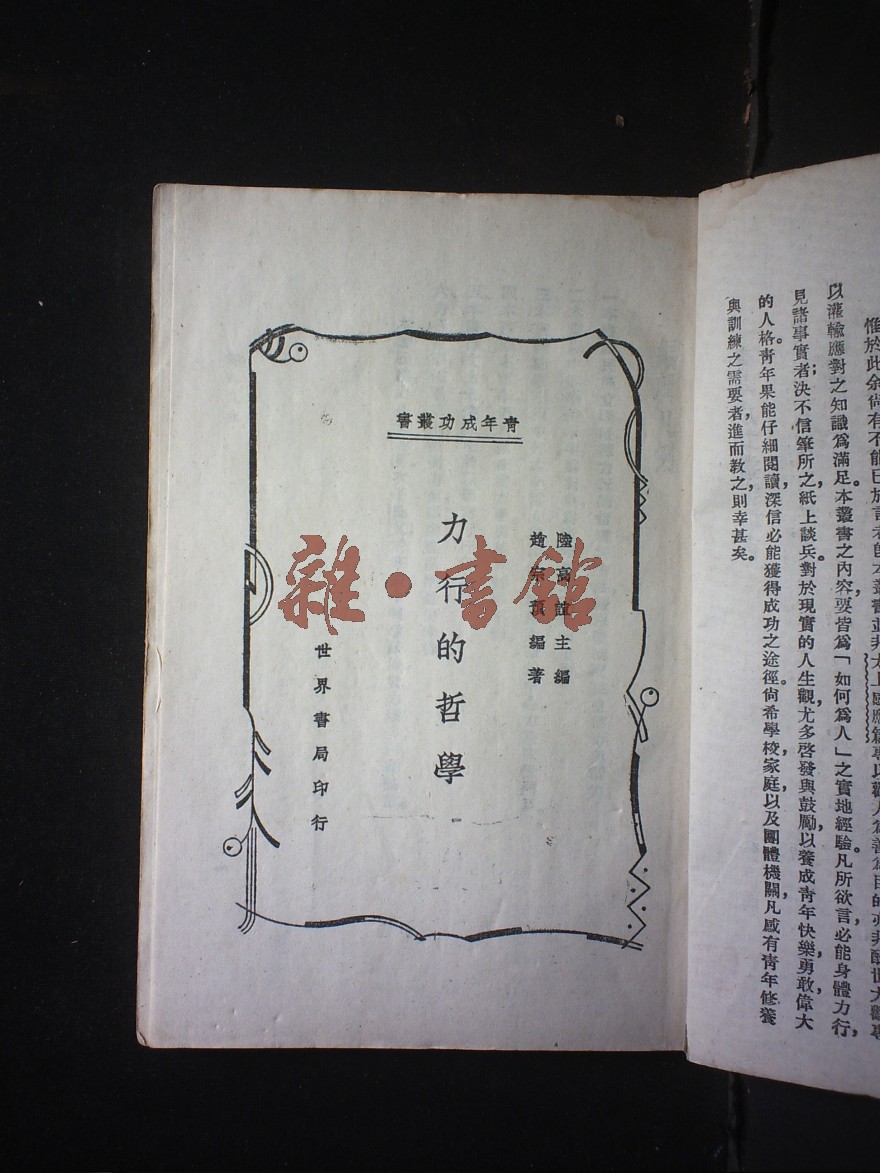 惟於此余尚有不能已於言者卽本叢書並非太上感應篇專以勸人爲善爲目的亦非醒世大觀專
以灌輸應對之知識爲滿足。本叢書之內容要皆爲「如何爲人」之實地經驗凡所欲言必能身體力行,
見諸事實者;決不信筆所之,紙上談兵對於現實的人生觀,尤多啓發與鼓勵,以養成青年快樂,勇敢,偉大
的人格。青年果能仔細閱讀,深信必能獲得成功之途徑。尙希學校,家庭,以及團體機關,凡感有青年修養
與訓練之需要者,進而敎之,則幸甚矣。
青年成功叢書
陸高誼主編
趙宗預編著
力行的哲學
世界書局印行
雜·書館